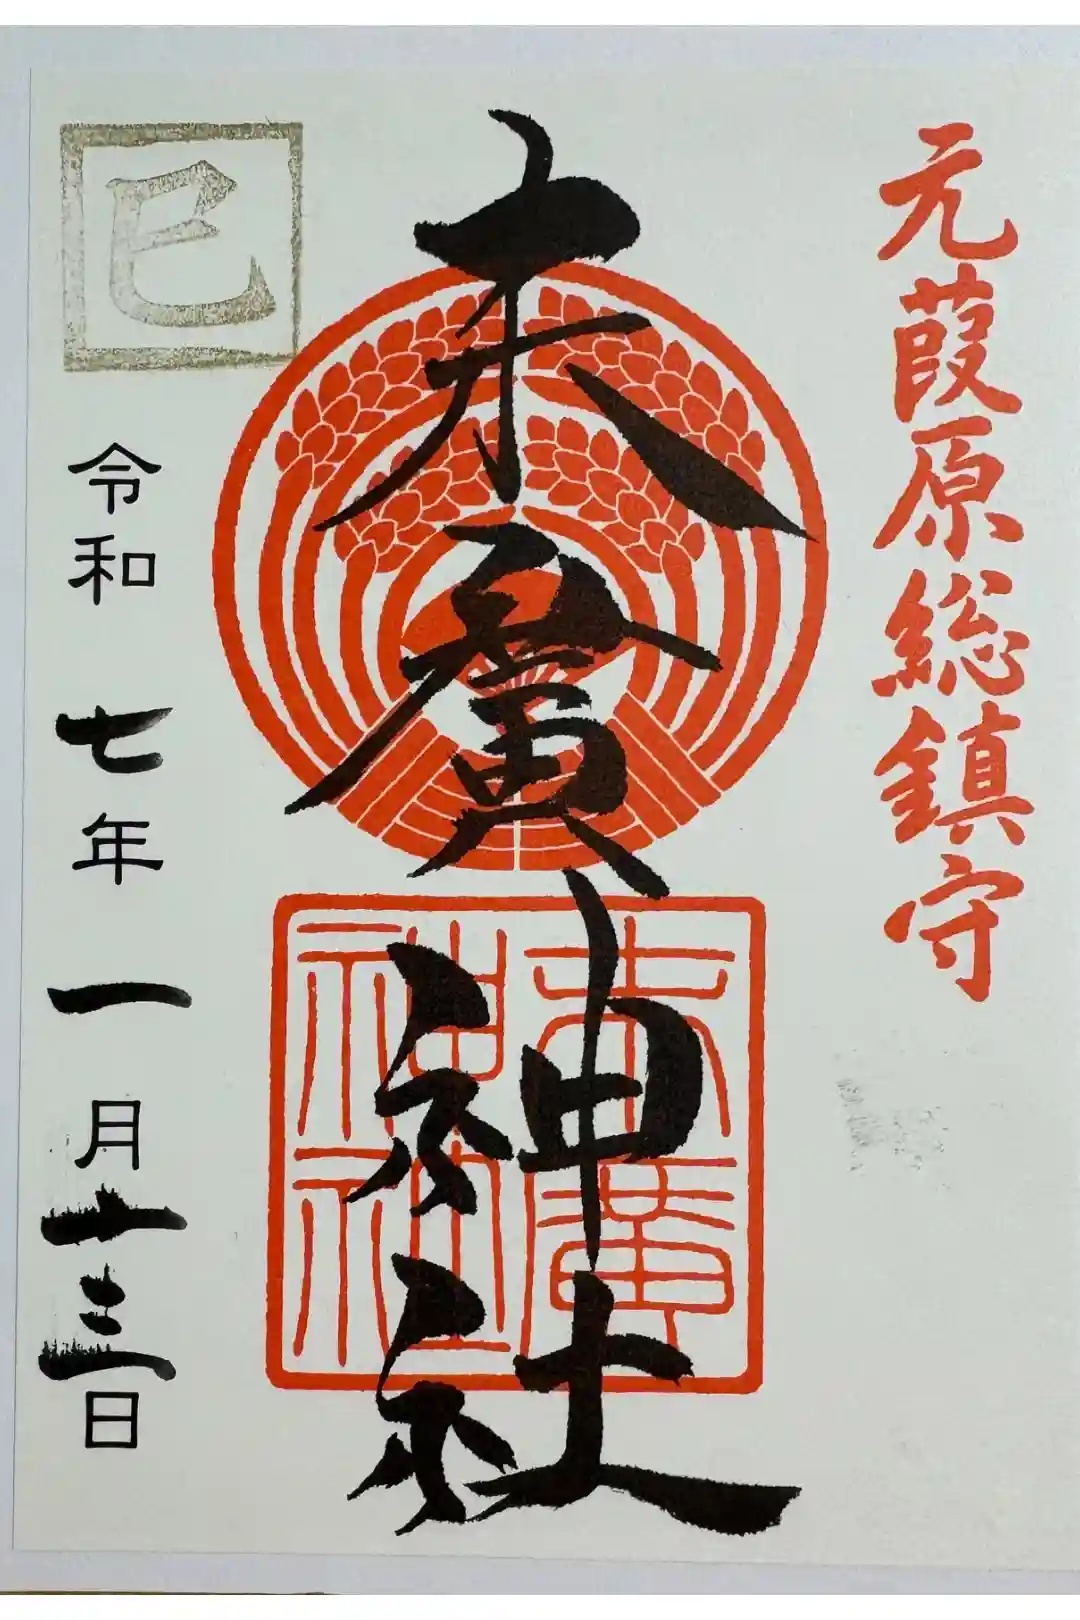 元葭原総鎮守
末廣神社
末廣
神社
巳
令和七年一月十三日